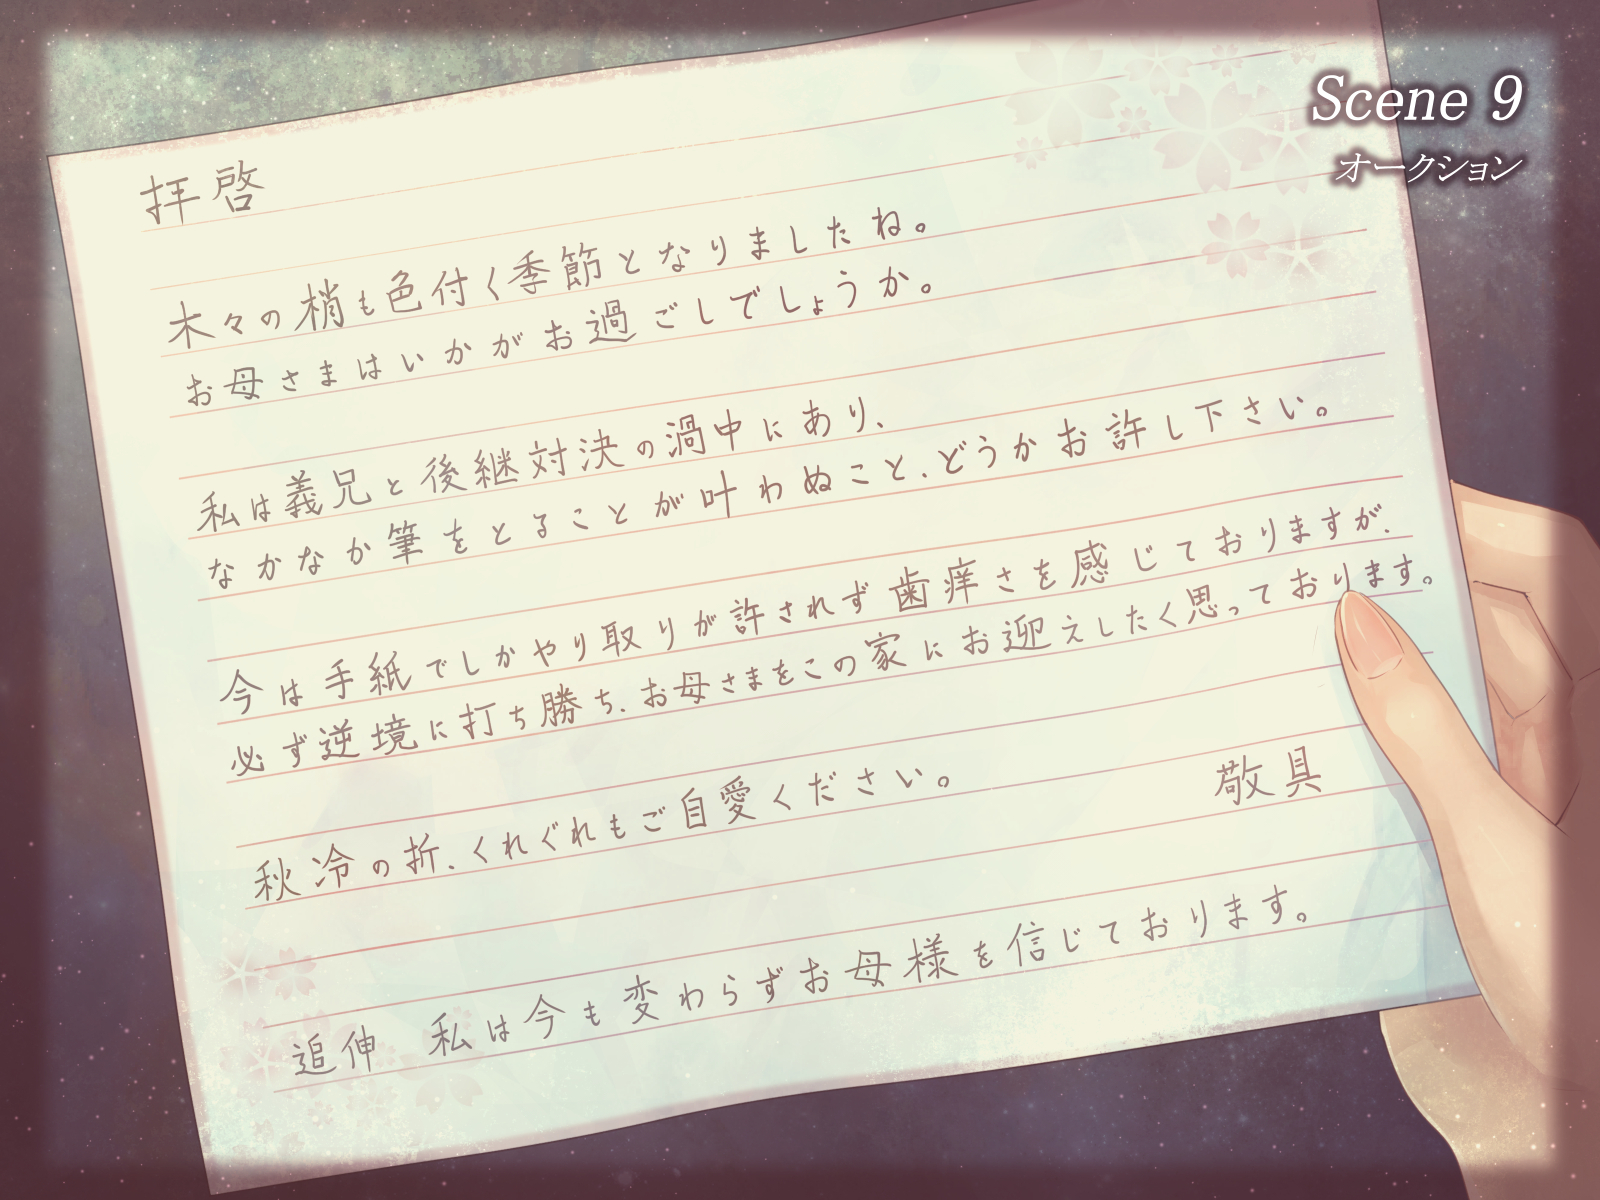 Scene 9
オークション
拝啓
木々の梢も色付く季節となりましたね。
お母さまはいかがお過ごしでしょうか。
私は義兄と後継対決の渦中にあり、
なかなか筆をとることが叶わぬこと、どうかお許し下さい。
今は手紙でしかやり取りが許されず歯痒さを感じておりますが、
必ず逆境に打ち勝ち、お母さまをこの家にお迎えしたく思っております。
秋冷の折、くれぐれもご自愛ください。
敬具
追伸　私は今も変わらずお母様を信じております。